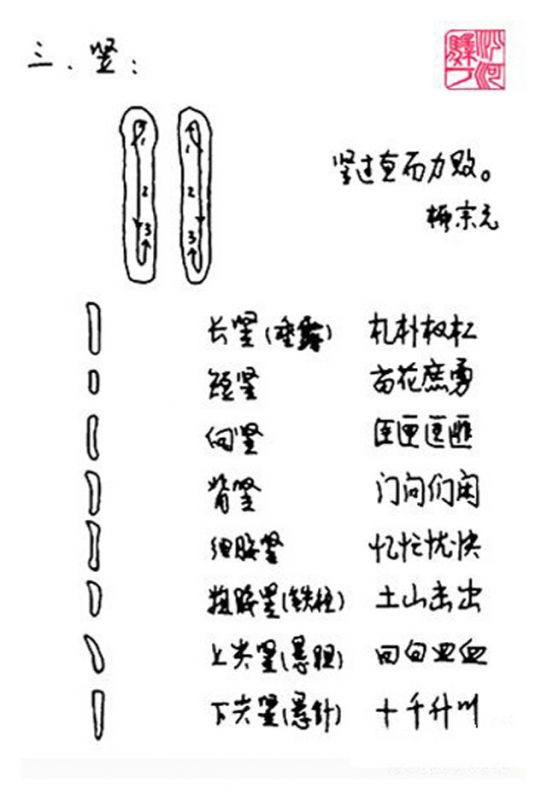 三、竖:
1 1
2 2
3 3
竖过直而力败。
柳宗元
长竖(垂露) 札朴权松
短竖 苗花庶勇
向竖 匠匣匡匪
背竖 门问们闲
细腰竖 忆忙忧快
粗腰竖(铁柱) 土山击出
上尖竖(悬胆) 白皿血
下尖竖(悬针) 十千升川